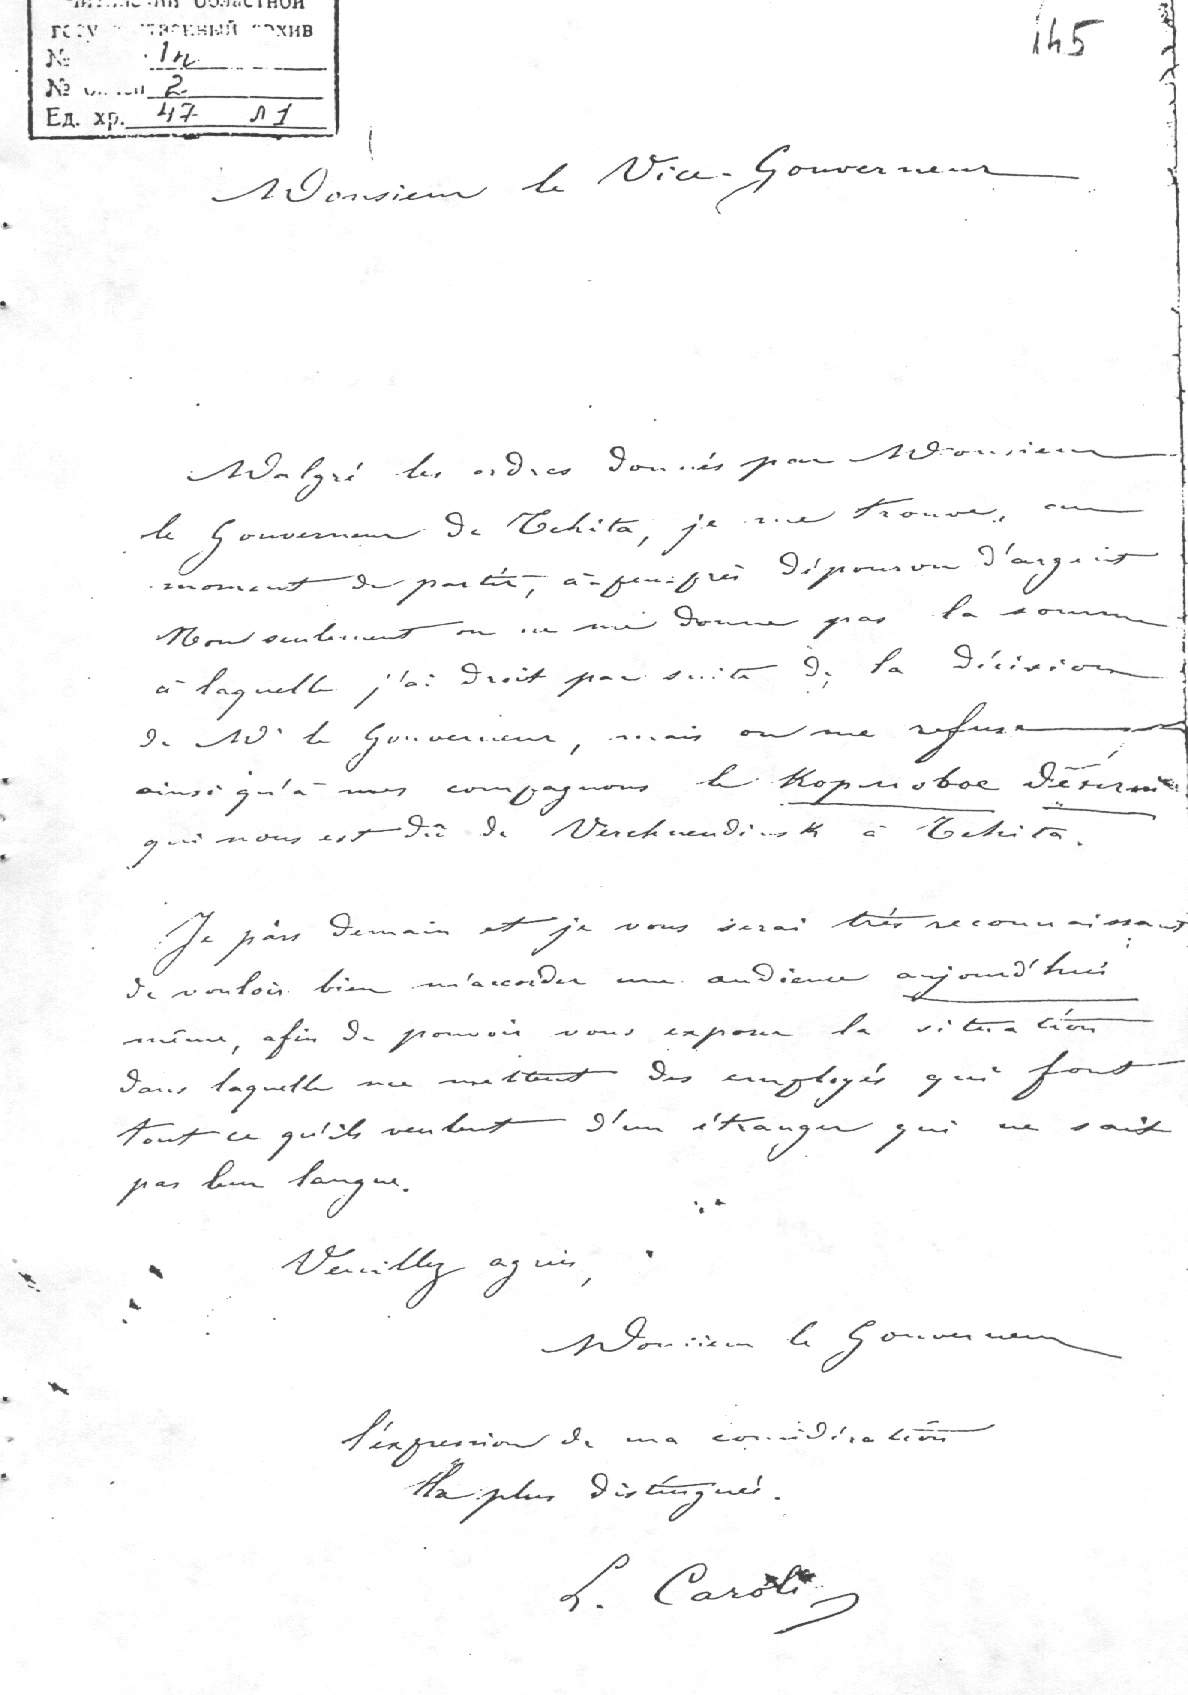 областной
архив
145
№ 1н
№ 2
Ед. хр. 47 л 1
Monsieur le Vice-Gouverneur
Malgré les ordres donnés par Monsieur
le Gouverneur de Tchita, je me trouve, au
moment de partir, à-peu-près dépourvu d'argent
Non seulement on ne me donne pas la somme
à laquelle j'ai droit par suite de la décision
de Mr le Gouverneur, mais on me refuse
ainsi qu'à mes compagnons le Кормовое
qui nous est dû de Verchneudinsk à Tchita.
Je pars demain et je vous serai très reconnaissant
de vouloir bien m'accorder une audience aujourd'hui
même, afin de pouvoir vous exposer la situation
dans laquelle me mettent des employés qui font
tout ce qu'ils veulent d'un étranger qui ne sait
pas leur langue.
Veuillez agréer,
Monsieur le Gouverneur
l'expression de ma considération
la plus distinguée.
L. Caroli